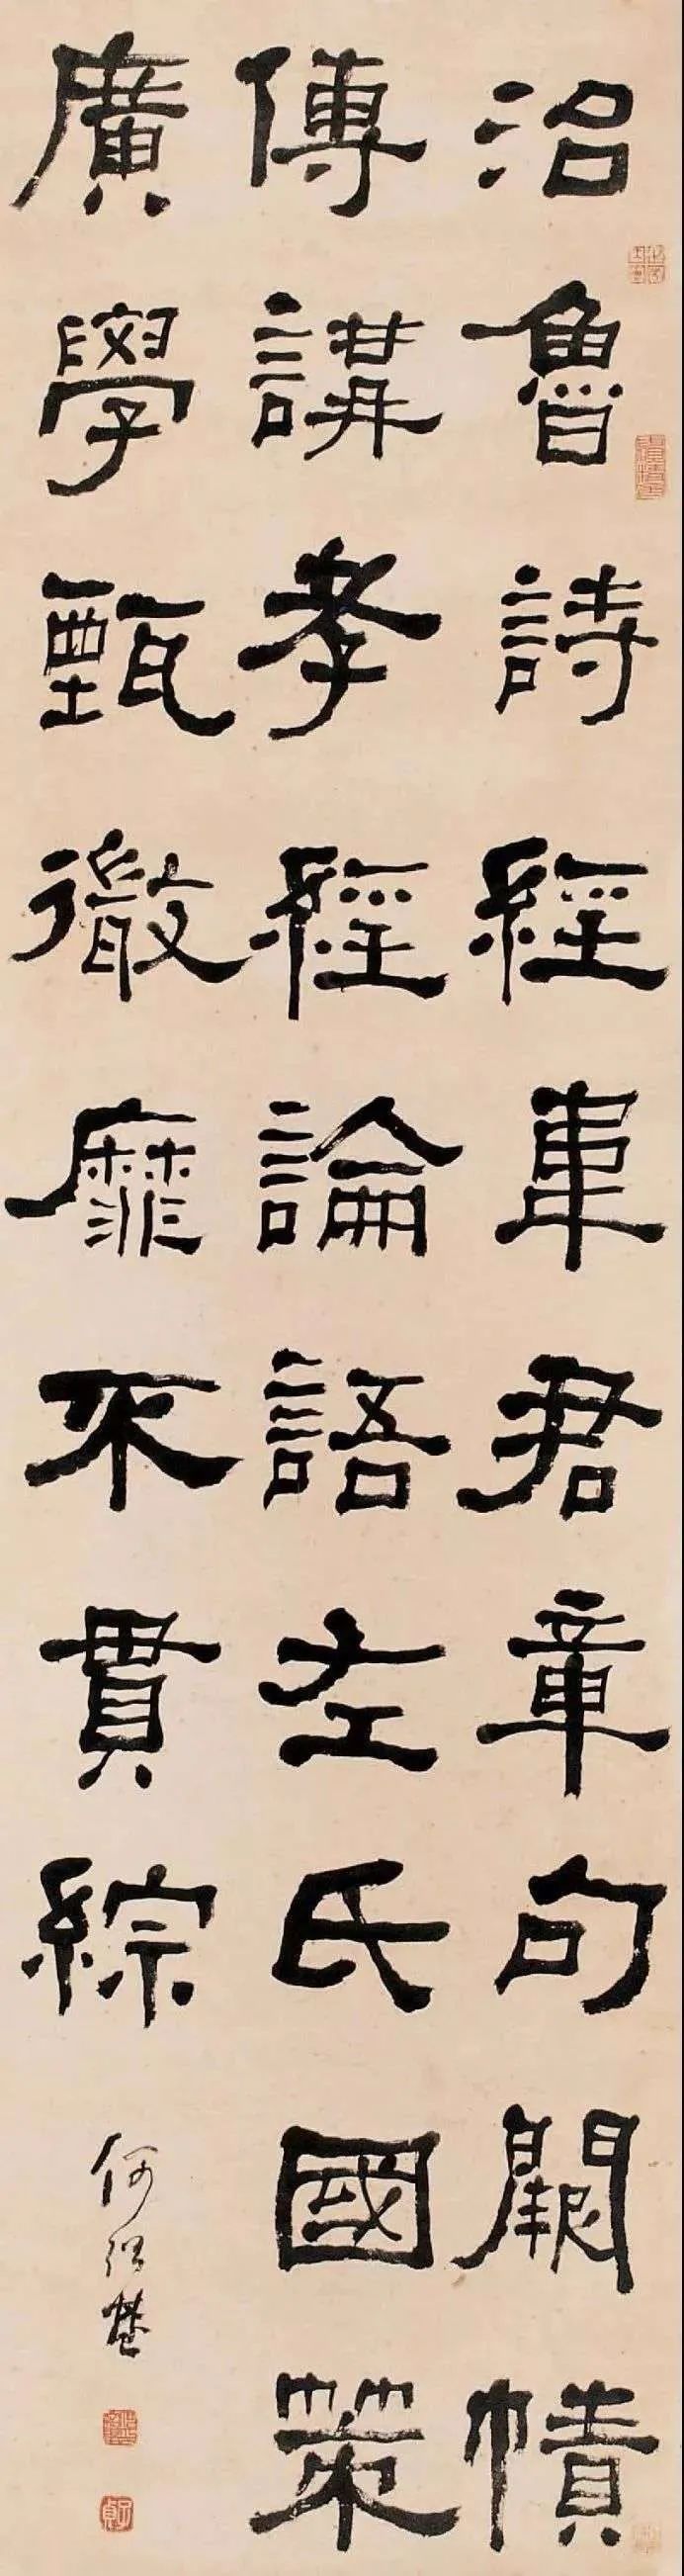 治魯詩經韋君章句闕幘
傳講孝經論語左氏國策
廣學甄徹靡不貫綜
何紹基